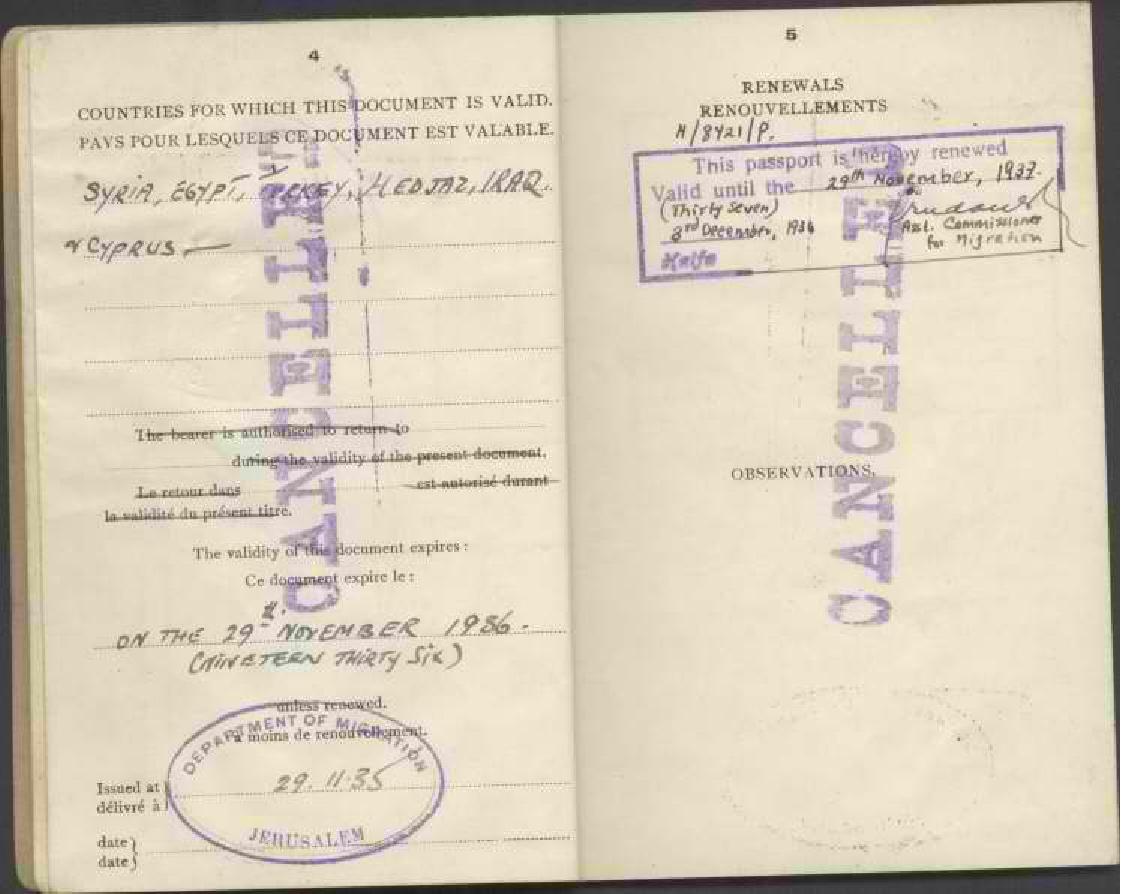 4
COUNTRIES FOR WHICH THIS DOCUMENT IS VALID.
PAYS POUR LESQUELS CE DOCUMENT EST VALABLE.
SYRIA, EGYPT, TURKEY, HEDJAZ, IRAQ.
& CYPRUS.
The bearer is authorised to return to
during the validity of the present document.
Le retour dans est autorisé durant
la validité du présent titre.
The validity of this document expires :
Ce document expire le :
ON THE 29th NOVEMBER 1936.
(NINETEEN THIRTY SIX)
unless renewed.
à moins de renouvellement.
DEPARTMENT OF MIGRATION
29.11.35
JERUSALEM
Issued at
délivré à
date
date
CANCELLED
5
RENEWALS
RENOUVELLEMENTS
N/8421/P.
This passport is hereby renewed
Valid until the 29th November, 1937.
(Thirty Seven)
3rd December, 1936
Asst. Commissioner
for Migration
Haifa
OBSERVATIONS.
CANCELLED